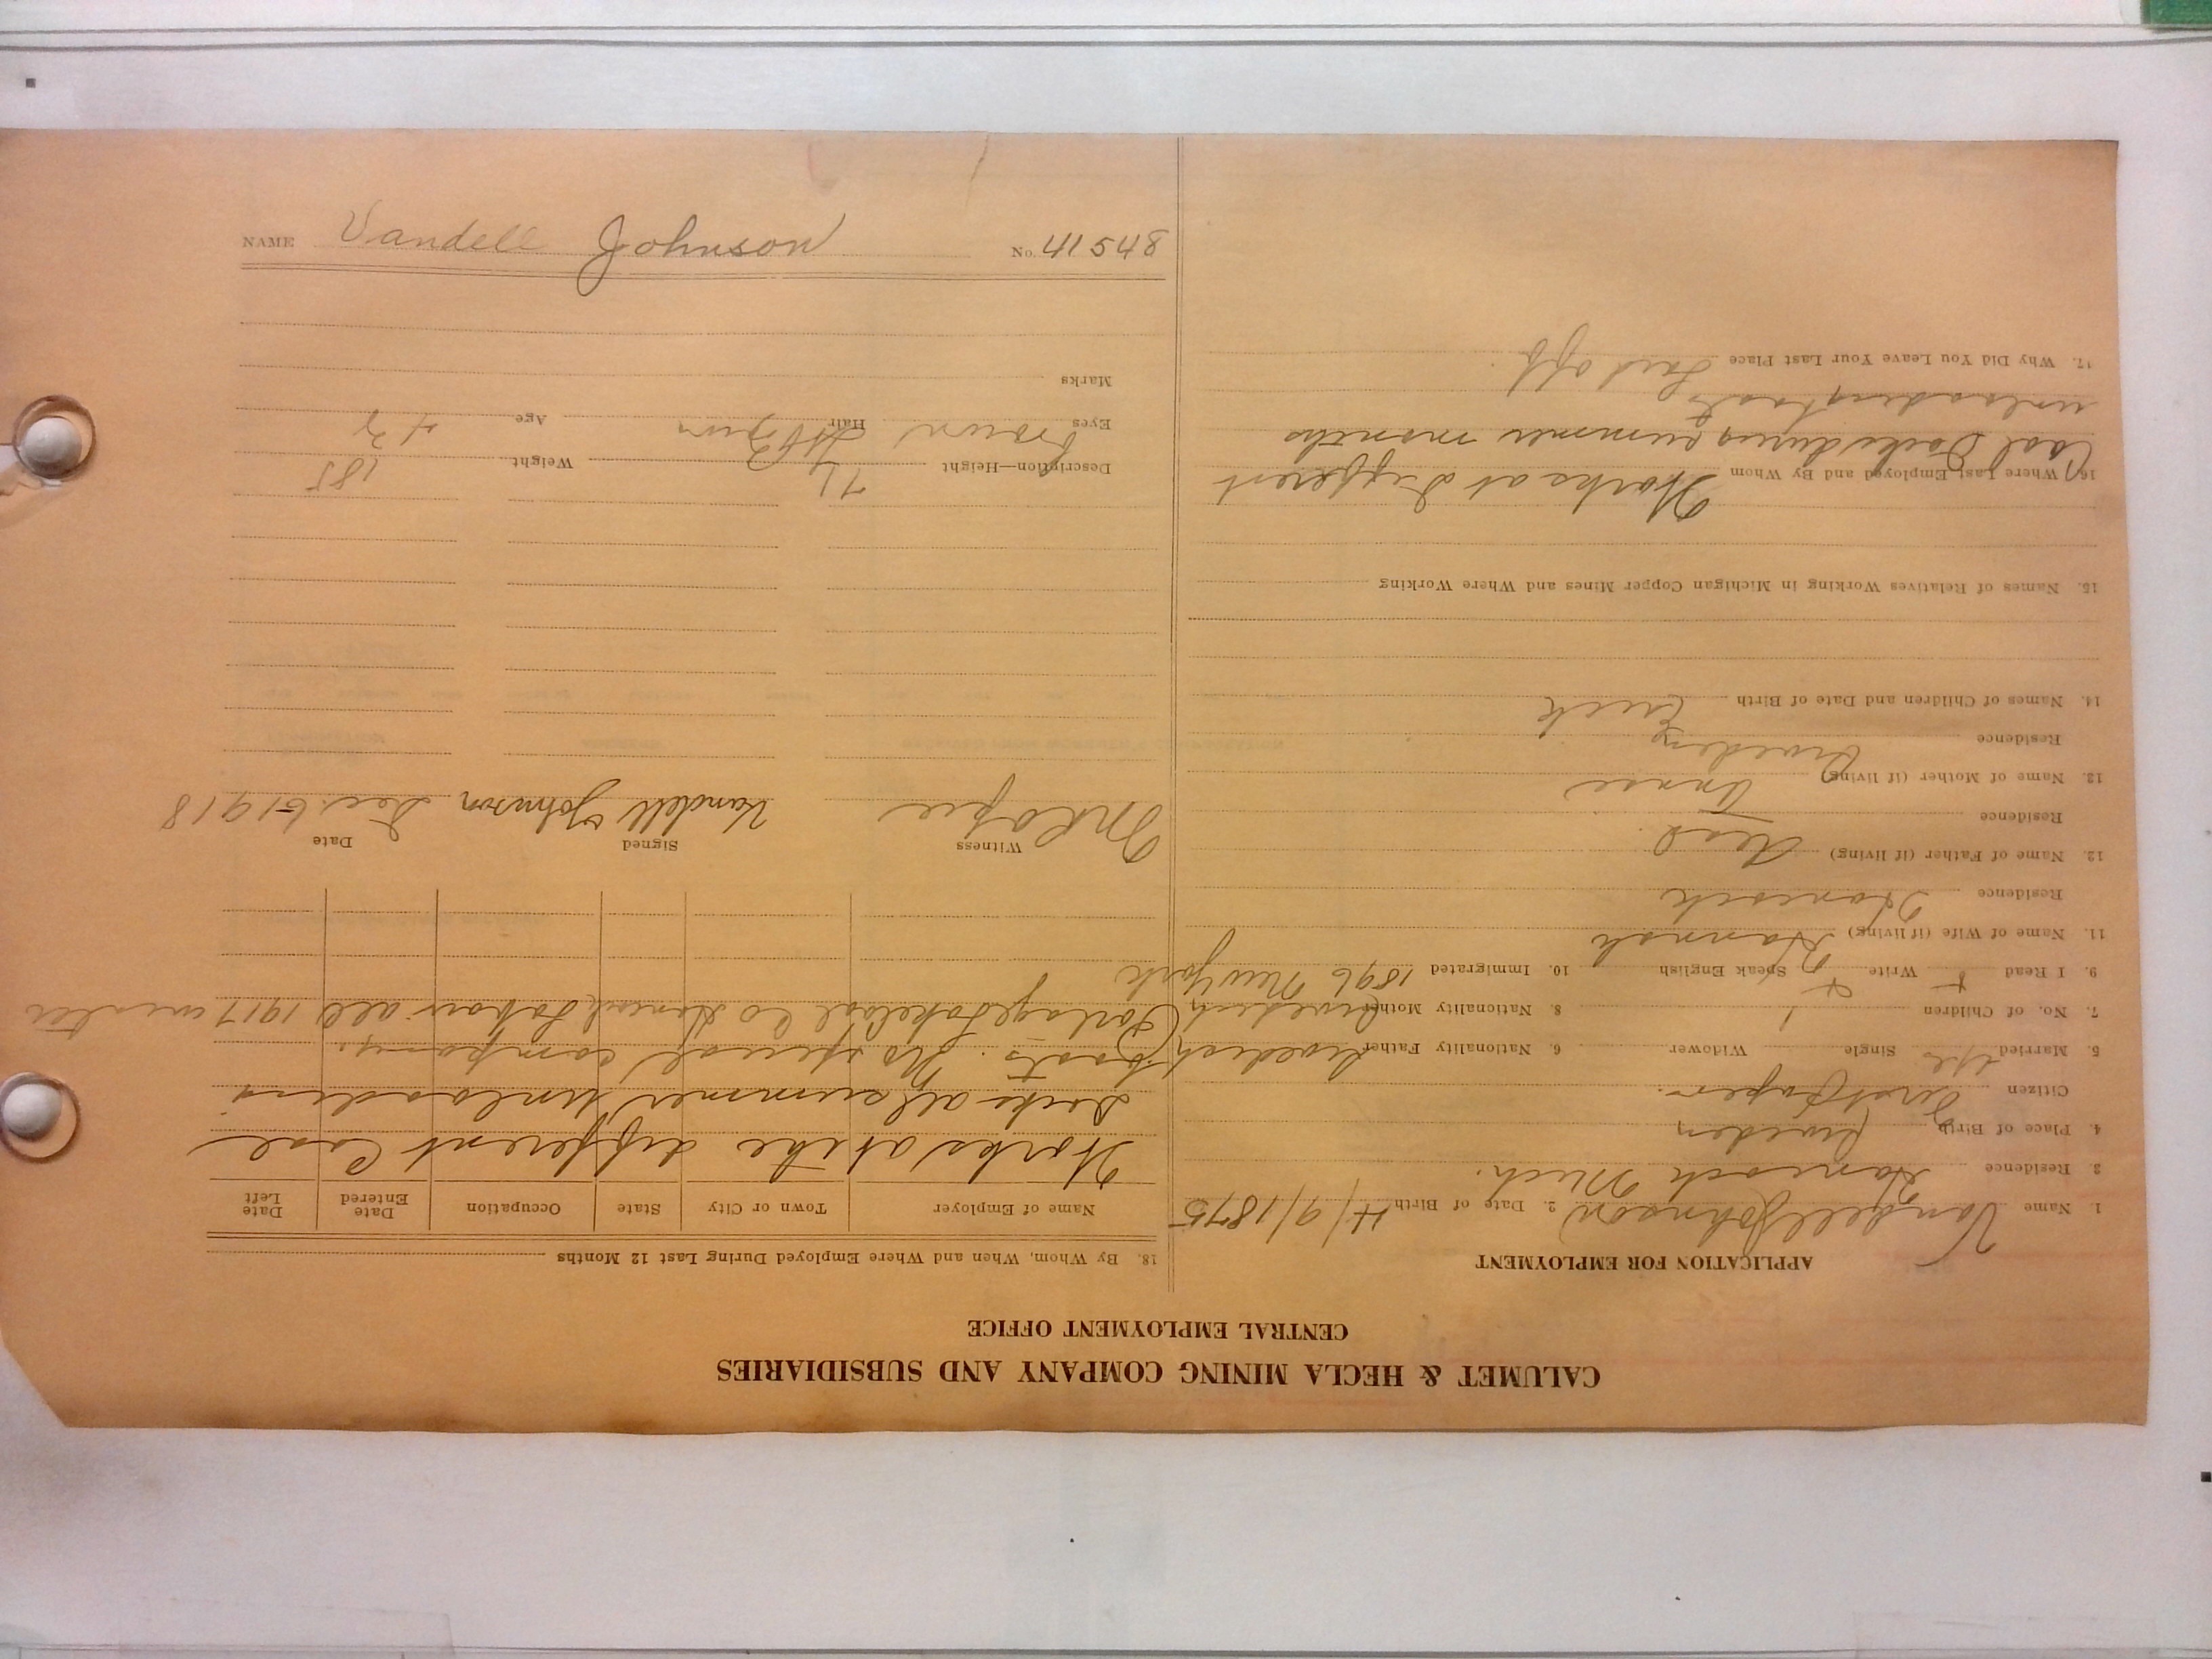 CALUMET & HECLA MINING COMPANY AND SUBSIDIARIES
CENTRAL EMPLOYMENT OFFICE
APPLICATION FOR EMPLOYMENT
1. Name Vandell Johnson 2. Date of Birth 4/9/1875
3. Residence Hancock Mich.
4. Place of Birth Sweden
Citizen First Paper.
5. Married Yes Single Widower 6. Nationality Father Swedish
7. No. of Children 1 8. Nationality Mother Swedish
9. I Read + Write + Speak English 10. Immigrated 1896 New York
11. Name of Wife (if living) Hannah
Residence Hancock
12. Name of Father (if living) Dead.
Residence
13. Name of Mother (if living) Annie
Residence Sweden
14. Names of Children and Date of Birth Erick
15. Names of Relatives Working in Michigan Copper Mines and Where Working
16. Where Last Employed and By Whom Works at different
Coal Docks during summer months
unloading boats
17. Why Did You Leave Your Last Place Laid off.
18. By Whom, When and Where Employed During Last 12 Months
Name of Employer Town or City State Occupation Date Entered Date Left
Works at the different Coal
Docks all summer unloading
boats. No special company.
Portage Lake Coal Co Hancock Labor all 1917 winter
Witness Signed Date
Vandell Johnson Dec. 5 1918
Description—Height 71 Weight 185
Eyes Brown Hair Age 43
Marks
NAME Vandell Johnson No. 41548